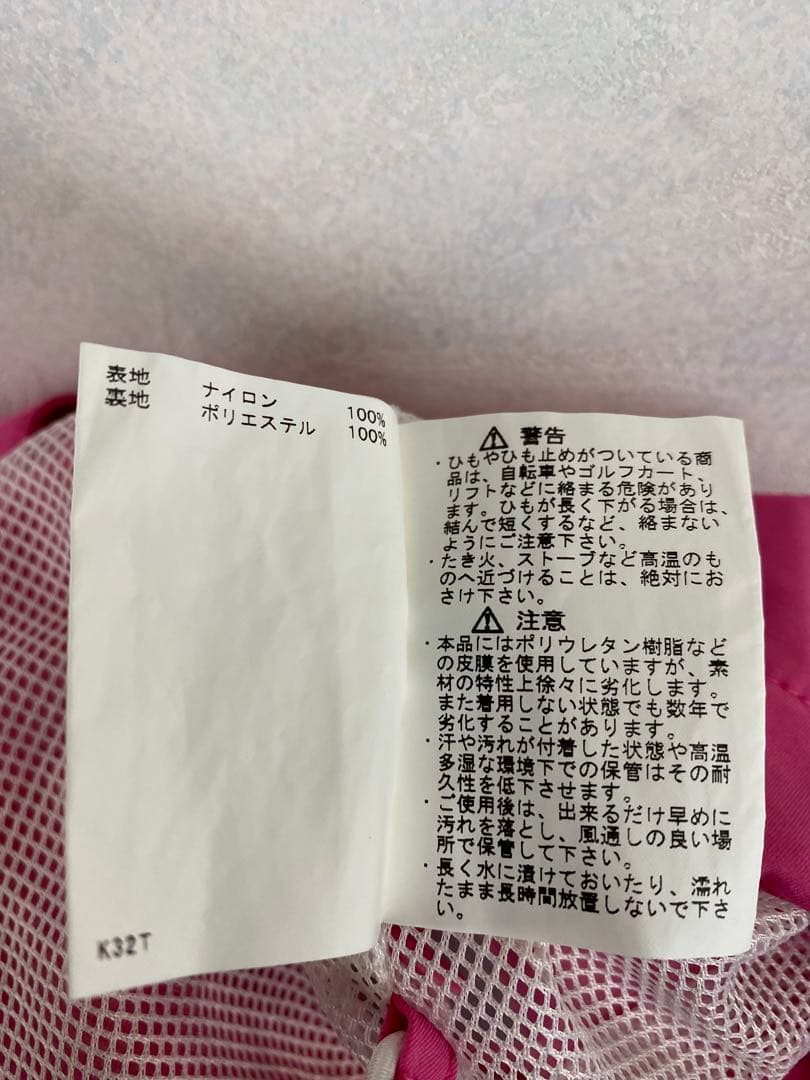 表地 ナイロン 100%
裏地 ポリエステル 100%
K32T
⚠ 警告
・ひもやひも止めがついている商
品は、自転車やゴルフカート、
リフトなどに絡まる危険があり
ます。ひもが長く下がる場合は、
結んで短くするなど、絡まない
ようにご注意下さい。
・たき火、ストーブなど高温のも
のへ近づけることは、絶対にお
さけ下さい。
⚠ 注意
・本品にはポリウレタン樹脂など
の皮膜を使用していますが、素
材の特性上徐々に劣化します。
また着用しない状態でも数年で
劣化することがあります。
・汗や汚れが付着した状態や高温
多湿な環境下での保管はその耐
久性を低下させます。
・ご使用後は、出来るだけ早めに
汚れを落とし、風通しの良い場
所で保管して下さい。
・長く水に漬けておいたり、濡れ
たまま長時間放置しないで下さ
い。